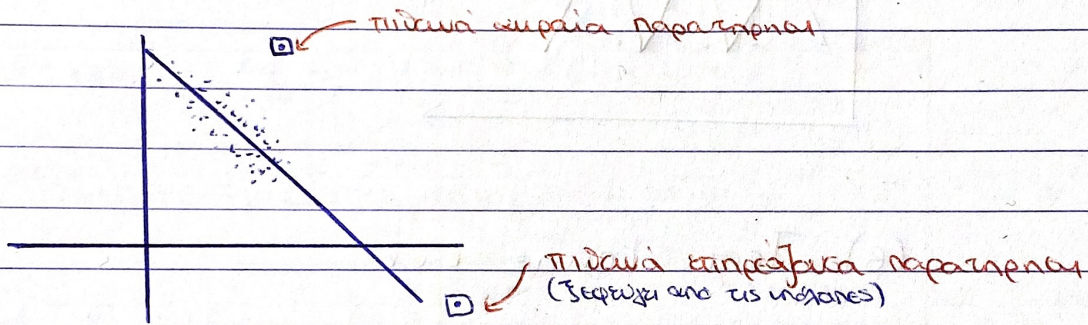 πιθανά ακραία παρατήρηση
πιθανά επηρεάζουσα παρατήρηση
(ξεφεύγει από τις υπόλοιπες)